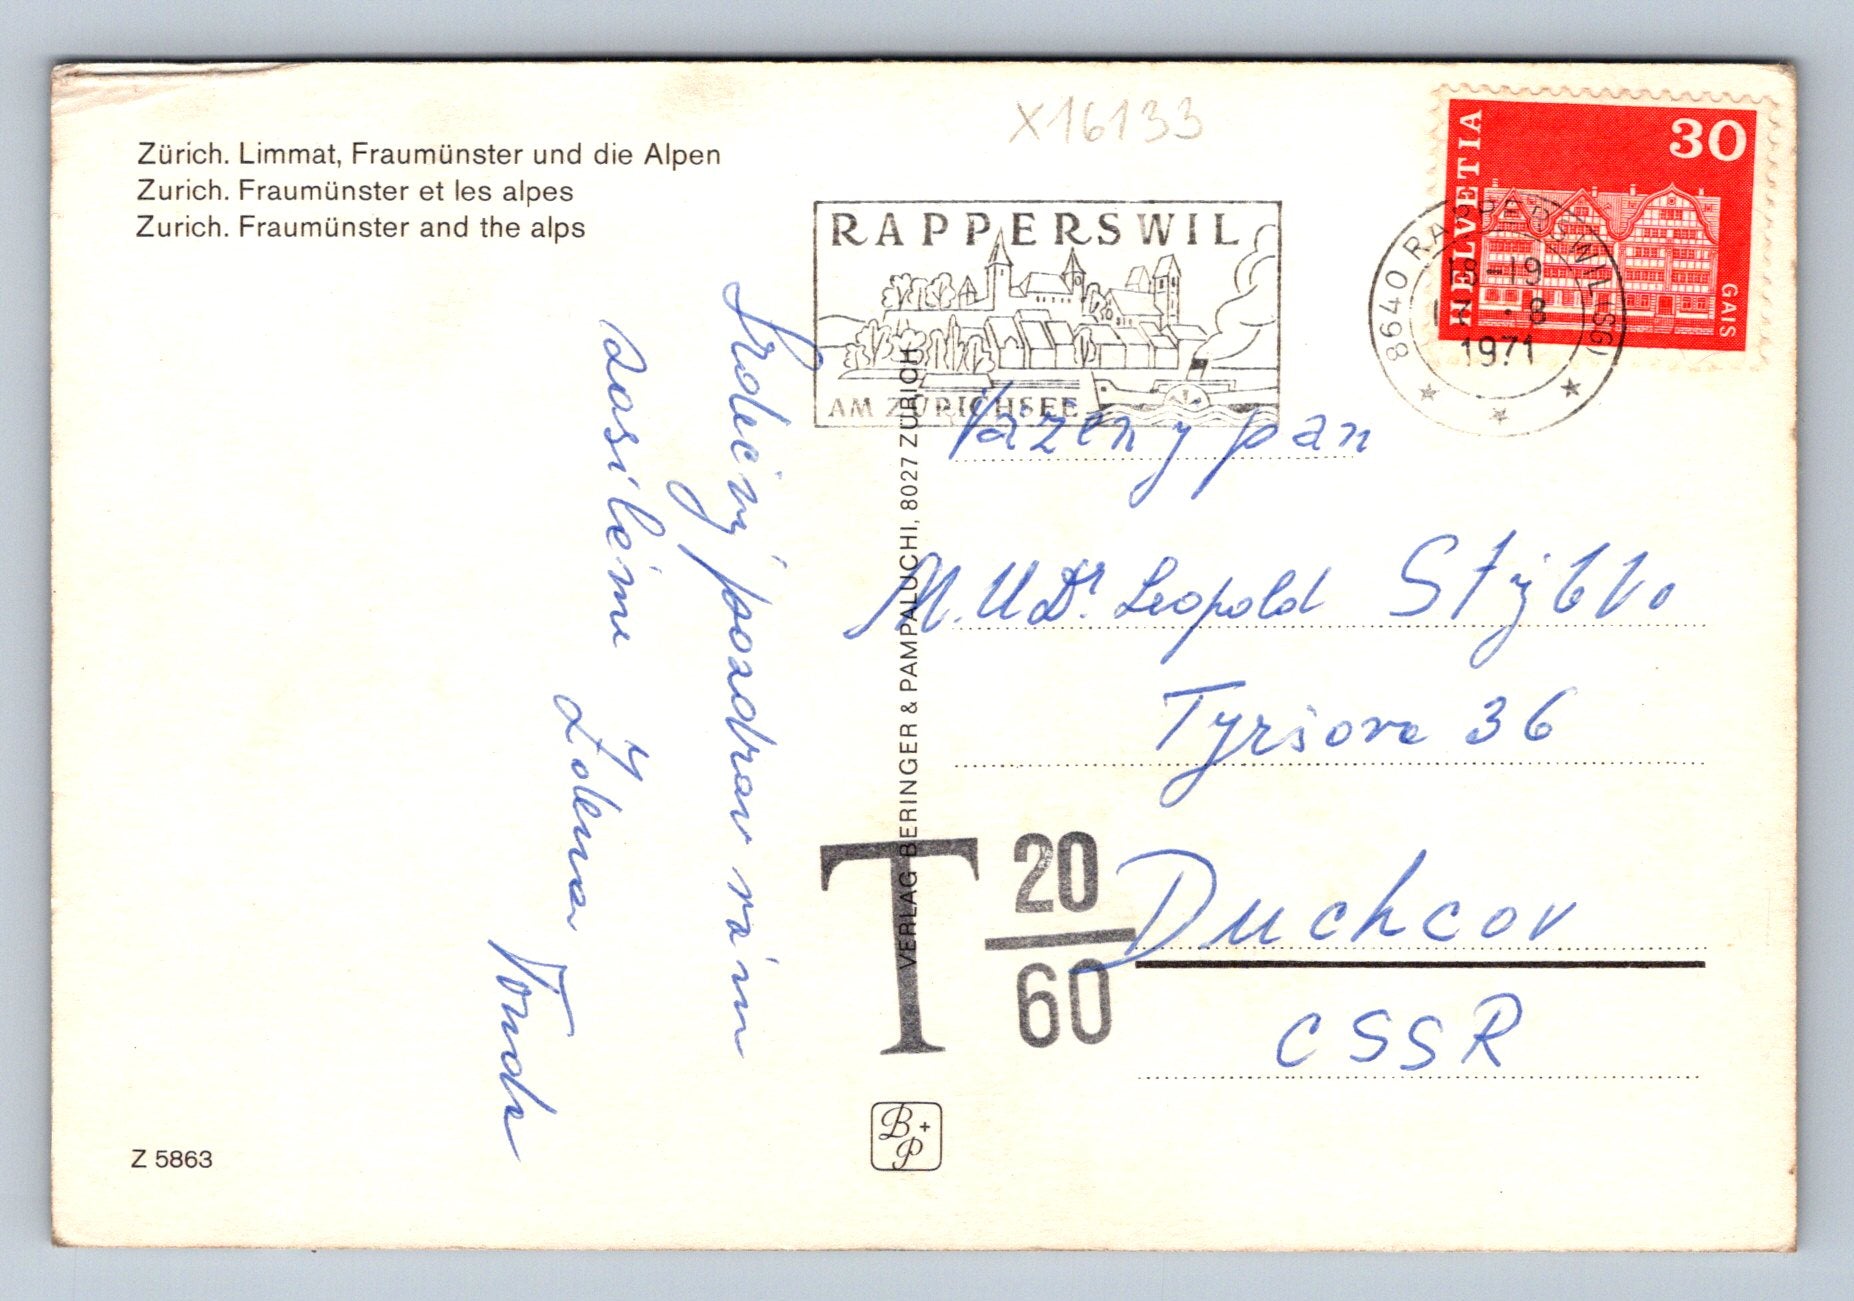 Zürich. Limmat, Fraumünster und die Alpen
Zurich. Fraumünster et les alpes
Zurich. Fraumünster and the alps
X16133
RAPPERSWIL
AM ZÜRICHSEE
HELVETIA
30
GAIS
8640 RAPPERSWIL (SG)
18-19
8
1971
Srdečný pozdrav vám
zasíláme
Vážený pan
M.UDr. Leopold Stýblo
Tyršova 36
Duchcov
CSSR
T 20
60
VERLAG BERINGER & PAMPALUCHI, 8027 ZÜRICH
B+P
Z 5863